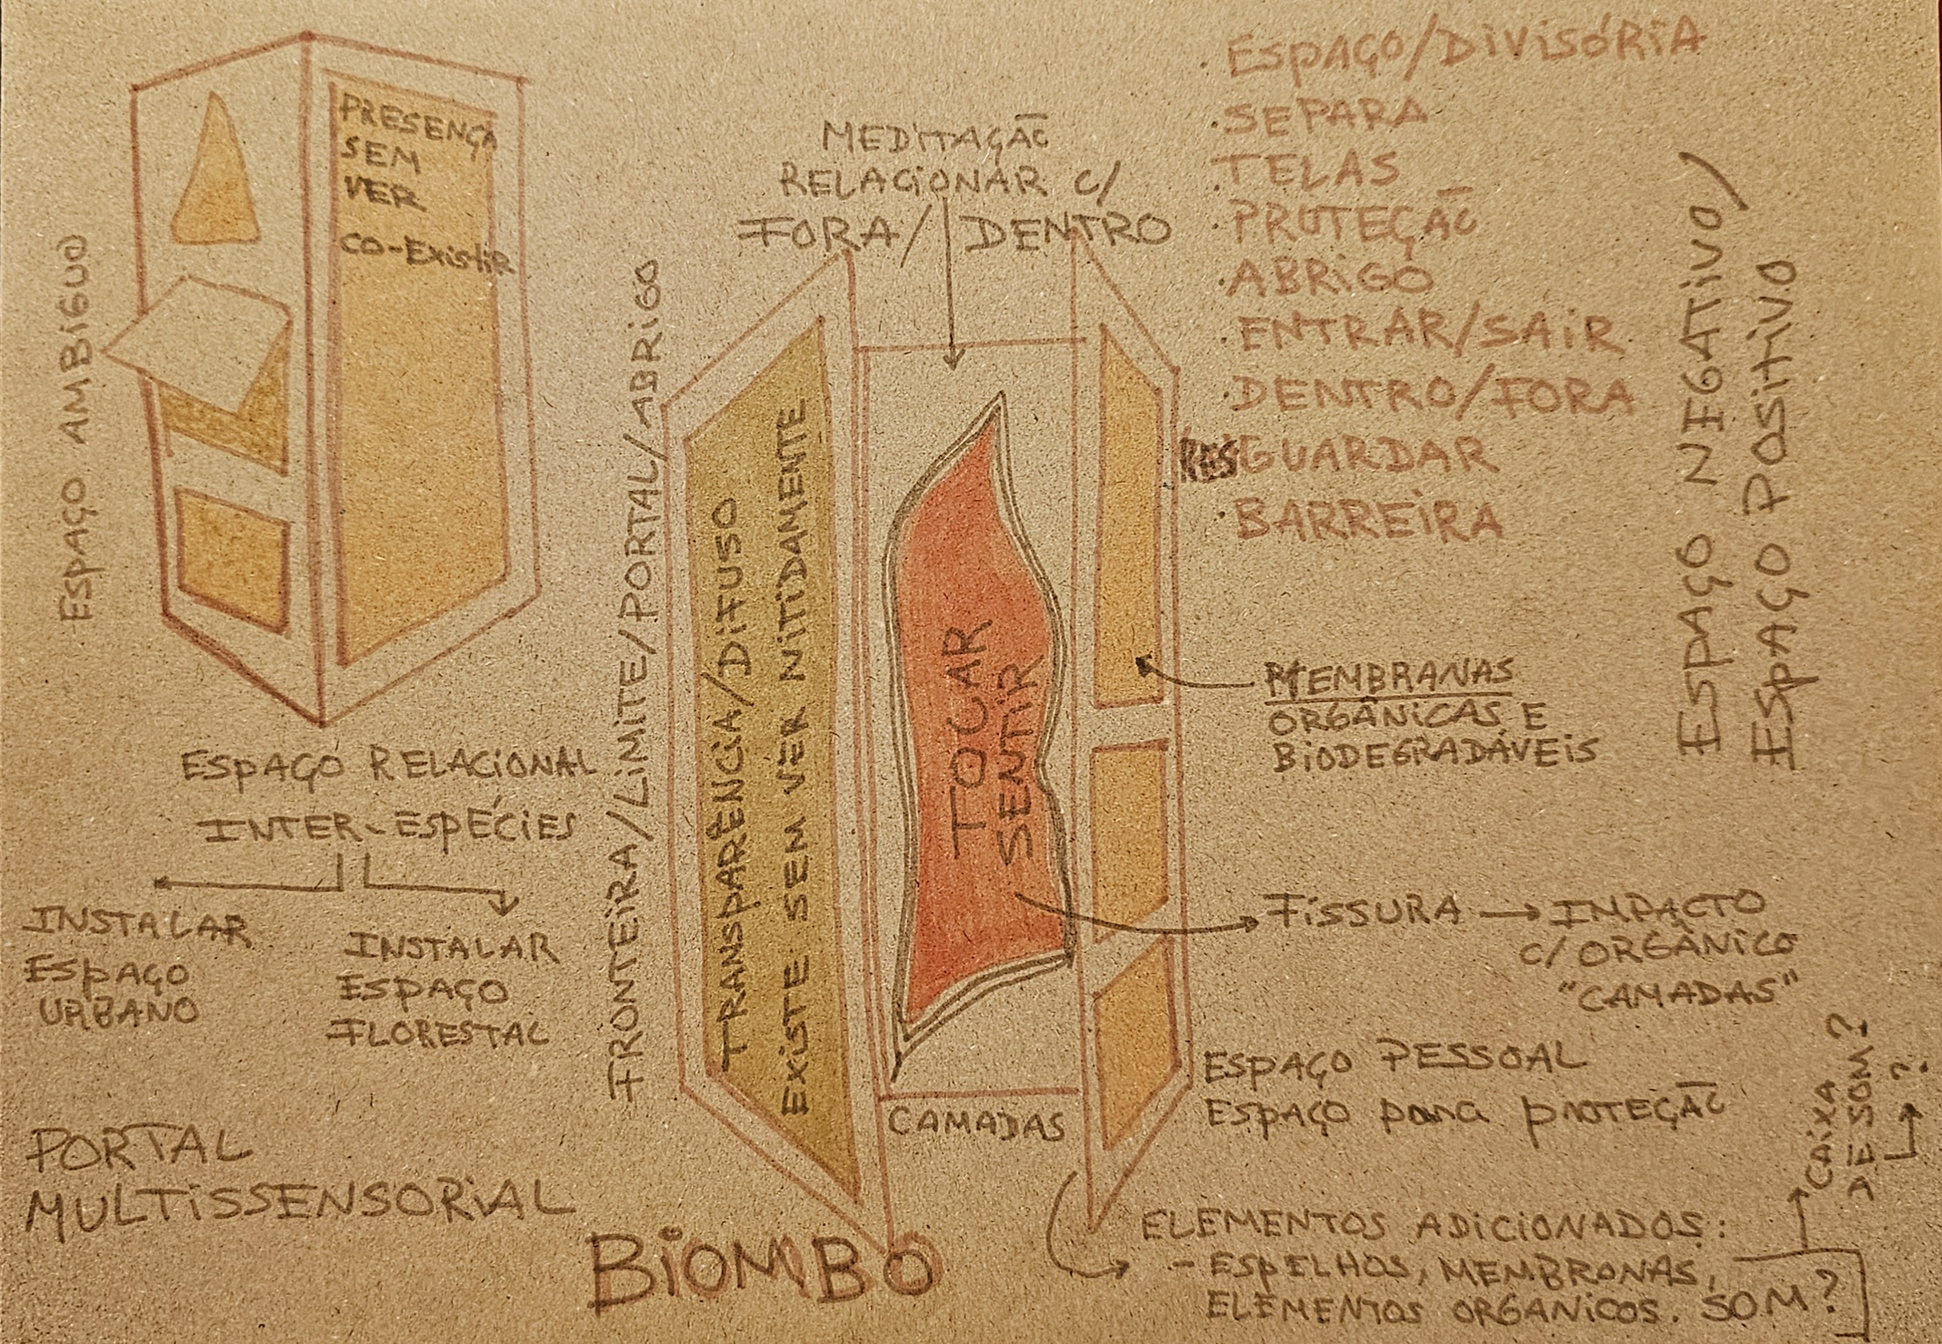 ESPAÇO AMBIGUO
PRESENÇA
SEM
VER
CO-EXISTIR
MEDITAÇÃO
RELACIONAR C/
FORA/DENTRO
· ESPAÇO/DIVISÓRIA
· SEPARA
· TELAS
· PROTEÇÃO
· ABRIGO
· ENTRAR/SAIR
· DENTRO/FORA
RESGUARDAR
· BARREIRA
ESPAÇO NEGATIVO/
ESPAÇO POSITIVO
FRONTEIRA/LIMITE/PORTAL/ABRIGO
TRANSPARÊNCIA/DIFUSO
EXISTE SEM VER NITIDAMENTE
TOCAR
SENTIR
MEMBRANAS
ORGÂNICAS E
BIODEGRADÁVEIS
ESPAÇO RELACIONAL
INTER-ESPÉCIES
INSTALAR
ESPAÇO
URBANO
INSTALAR
ESPAÇO
FLORESTAL
FISSURA → IMPACTO
C/ORGÂNICO
"CAMADAS"
ESPAÇO PESSOAL
ESPAÇO para proteção
CAMADAS
PORTAL
MULTISSENSORIAL
BIOMBO
ELEMENTOS ADICIONADOS:
- ESPELHOS, MEMBRONAS,
ELEMENTOS ORGÂNICOS. SOM?
CAIXA
DE SOM?
?